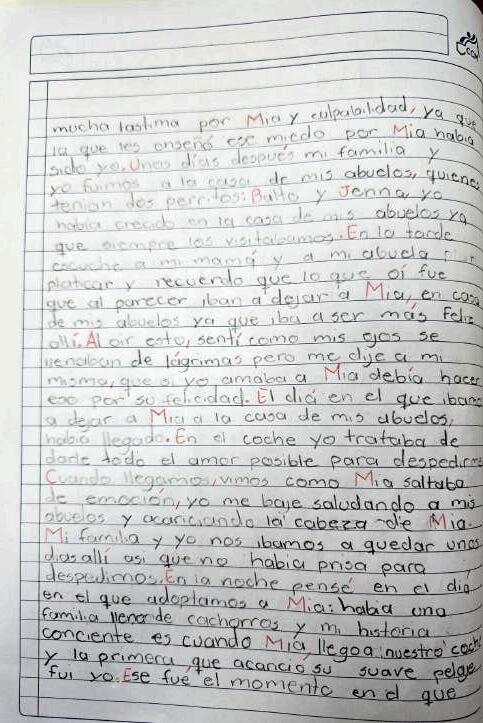 mucha lastima por Mia y culpabilidad, ya que
la que les enseñó ese miedo por Mia habia
sido yo. Unos días después mi familia y
yo fuimos a la casa de mis abuelos, quienes
tenian dos perritos: Balto y Jenna, yo
habia crecido en la casa de mis abuelos ya
que siempre los visitabamos. En la tarde
escuche a mi mamá y a mi abuela
platicar y recuerdo que lo que oí fue
que al parecer iban a dejar a Mia, en casa
de mis abuelos ya que iba a ser más feliz
allí. Al oir esto, sentí como mis ojos se
llenaban de lágrimas pero me dije a mi
misma, que si yo amaba a Mia debía hacer
eso por su felicidad. El diá en el que iban
a dejar a Mia a la casa de mis abuelos,
había llegado. En el coche yo trataba de
darle todo el amor posible para despedirme
Cuando llegamos, vimos como Mia saltaba
de emoción, yo me baje saludando a mis
abuelos y acariciando la cabeza de Mia.
Mi familia y yo nos ibamos a quedar unos
dias allí asi que no habia prisa para
despedirnos. En la noche pensé en el dia
en el que adoptamos a Mia: habia una
familia llena de cachorros y mi historia
conciente es cuando Mia llego a nuestro coche
y la primera que acaricio su suave pelaje
fui yo. Ese fue el momento en el que